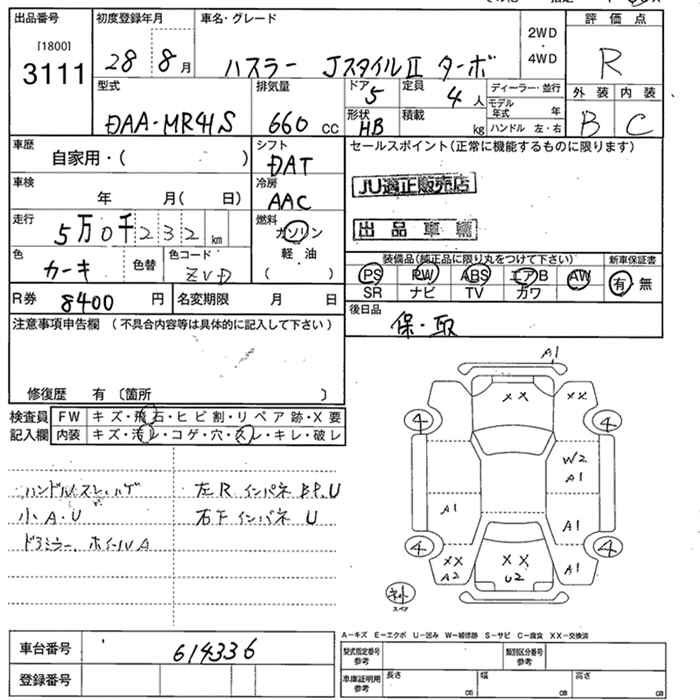 出品番号
[1800]
3111
初度登録年月
28 8月
車名・グレード
ハスラー JスタイルⅡ ターボ
2WD
・
4WD
評価点
R
外装 内装
B C
型式
DAA-MR41S
排気量
660 cc
ドア
5
形状
HB
定員
4人
積載
kg
ディーラー・並行
モデル年式 年
ハンドル 左・右
車歴
自家用・( )
シフト
DAT
車検
年 月( 日)
冷房
AAC
走行
5万0千232km
燃料
ガソリン
軽油
( )
色
カーキ
色替
色コード
ZVD
R券
8400円
名変期限 月 日
セールスポイント(正常に機能するものに限ります)
JU適正販売店
出品車輌
装備品(純正品に限り丸をつけて下さい)
PS PW ABS エアB AW
SR ナビ TV カワ
新車保証書
有・無
後日品
保・取
注意事項申告欄 (不具合内容等は具体的に記入して下さい)
修復歴 有 〔箇所 〕
検査員記入欄
FW キズ・飛石・ヒビ割・リペア跡・X要
内装 キズ・汚レ・コゲ・穴・スレ・キレ・破レ
ハンドルスレ、ハゲ
小A・U
ドアミラー、ホイールA
左Rインパネ BP、U
右Fインパネ U
A1
XX XX
4 4
W2
A1
A1 A1
4 4
XX
A2
XX
U2
A1
スペア
A-キズ E-エクボ U-凹み W-補修跡 S-サビ C-腐食 XX-交換済
車台番号
614336
登録番号
型式指定番号
参考
類別区分番号
参考
車庫証明用
参考
長さ 幅 高さ